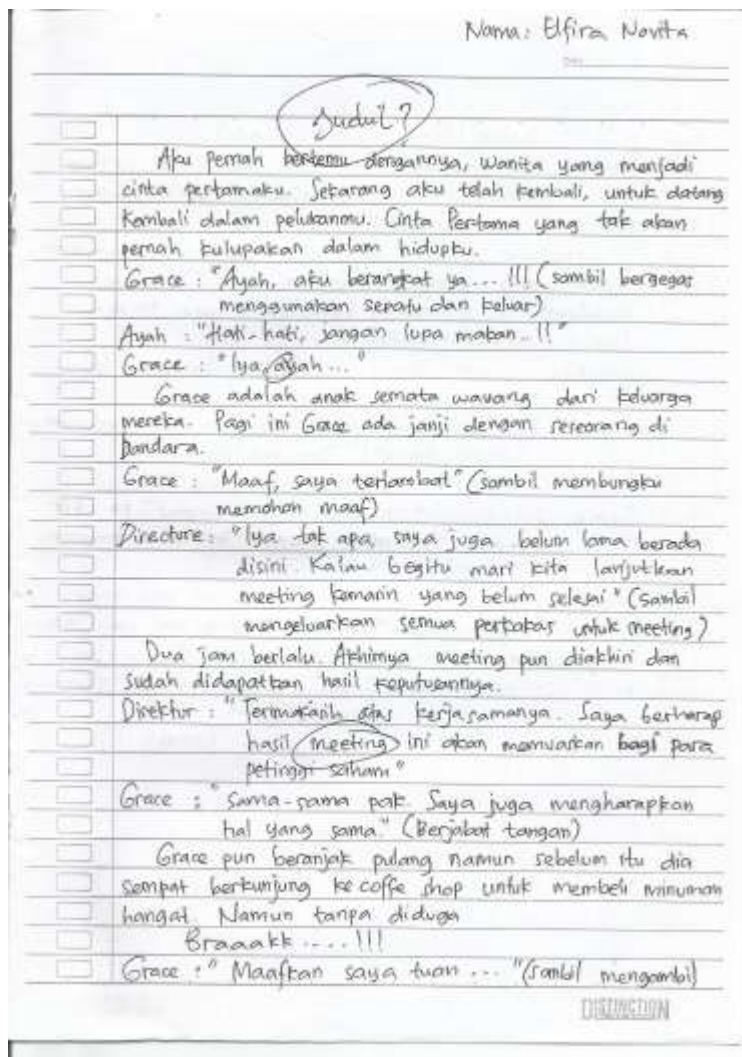 Nama: Elfira Novita
Judul?
Aku pernah bertemu dengannya, wanita yang menjadi
cinta pertamaku. Sekarang aku telah kembali, untuk datang
kembali dalam pelukanmu. Cinta Pertama yang tak akan
pernah kulupakan dalam hidupku.
Grace : "Ayah, aku berangkat ya... !!! (sambil bergegas
menggunakan sepatu dan keluar)
Ayah : "Hati-hati, jangan lupa makan..!!"
Grace : "Iya, ayah ..."
Grace adalah anak semata wavang dari keluarga
mereka. Pagi ini Grace ada janji dengan seseorang di
bandara.
Grace : "Maaf, saya terlambat" (sambil membungku
memohon maaf)
Directure : "Iya tak apa, saya juga belum lama berada
disini. Kalau begitu mari kita lanjutkan
meeting kemarin yang belum selesai" (Sambil
mengeluarkan semua perkakas untuk meeting)
Dua jam berlalu. Akhirnya meeting pun diakhiri dan
sudah didapatkan hasil keputusannya.
Direktur : "Terimakasih atas kerjasamanya. Saya berharap
hasil meeting ini akan memuaskan bagi para
petinggi saham"
Grace : "Sama-sama pak. Saya juga mengharapkan
hal yang sama." (Berjabat tangan)
Grace pun beranjak pulang namun sebelum itu dia
sempat berkunjung ke coffe shop untuk membeli minuman
hangat. Namun tanpa diduga
Braaakk ....!!!
Grace : "Maafkan saya tuan ... "(sambil mengambil